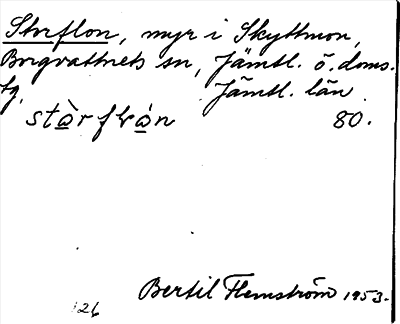 Storflon, myr i Skyttmon,
Borgvattnets sn, Jämtl. ö. doms.
tg. Jämtl. län
stòrflón 80.
Bertil Flemström 1953.
126